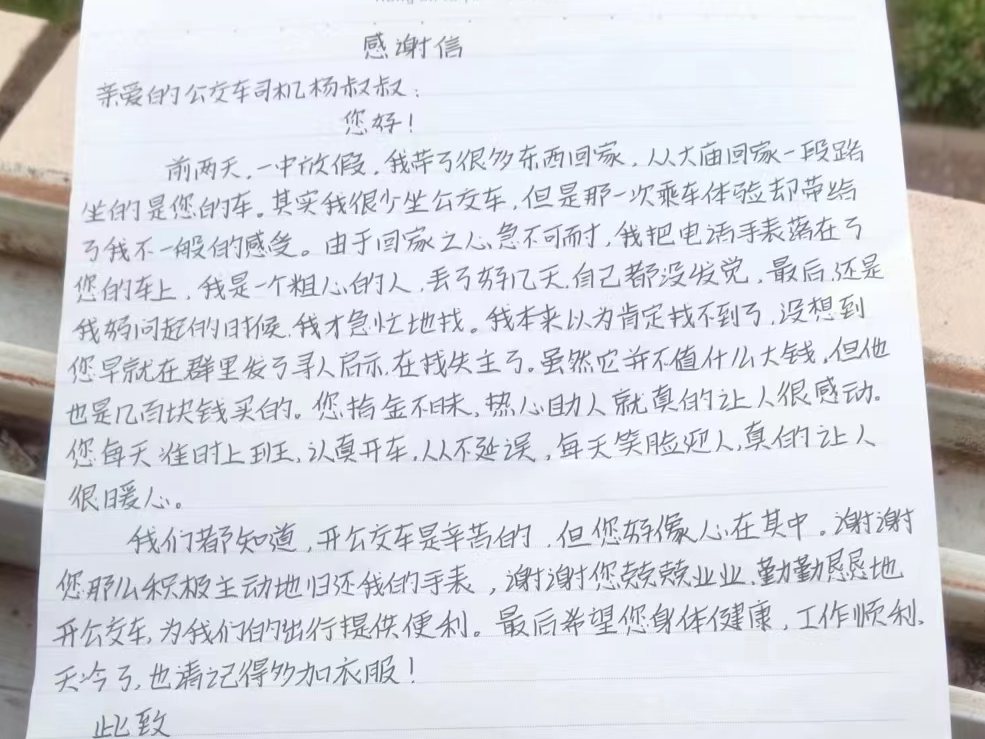 感谢信
亲爱的公交车司机杨叔叔：
您好！
前两天，一中放假，我带了很多东西回家，从大庙回家一段路
坐的是您的车。其实我很少坐公交车，但是那一次乘车体验却带给
了我不一般的感受。由于回家之心急不可耐，我把电话手表落在了
您的车上，我是一个粗心的人，丢了好几天，自己都没发觉，最后，还是
我妈问起的时候，我才急忙地找。我本来以为肯定找不到了，没想到
您早就在群里发了寻人启示，在找失主了。虽然它并不值什么大钱，但他
也是几百块钱买的。您拾金不昧，热心助人就真的让人很感动。
您每天准时上班，认真开车，从不延误，每天笑脸迎人，真的让人
很暖心。
我们都知道，开公交车是辛苦的，但您好像心在其中。谢谢
您那么积极主动地归还我的手表，谢谢您兢兢业业、勤勤恳恳地
开公交车，为我们的出行提供便利。最后希望您身体健康，工作顺利，
天冷了，也请记得多加衣服！
此致